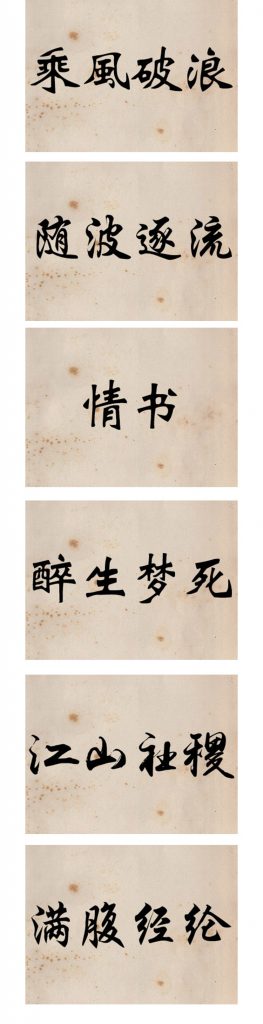 乘風破浪
随波逐流
情书
醉生梦死
江山社稷
满腹经纶